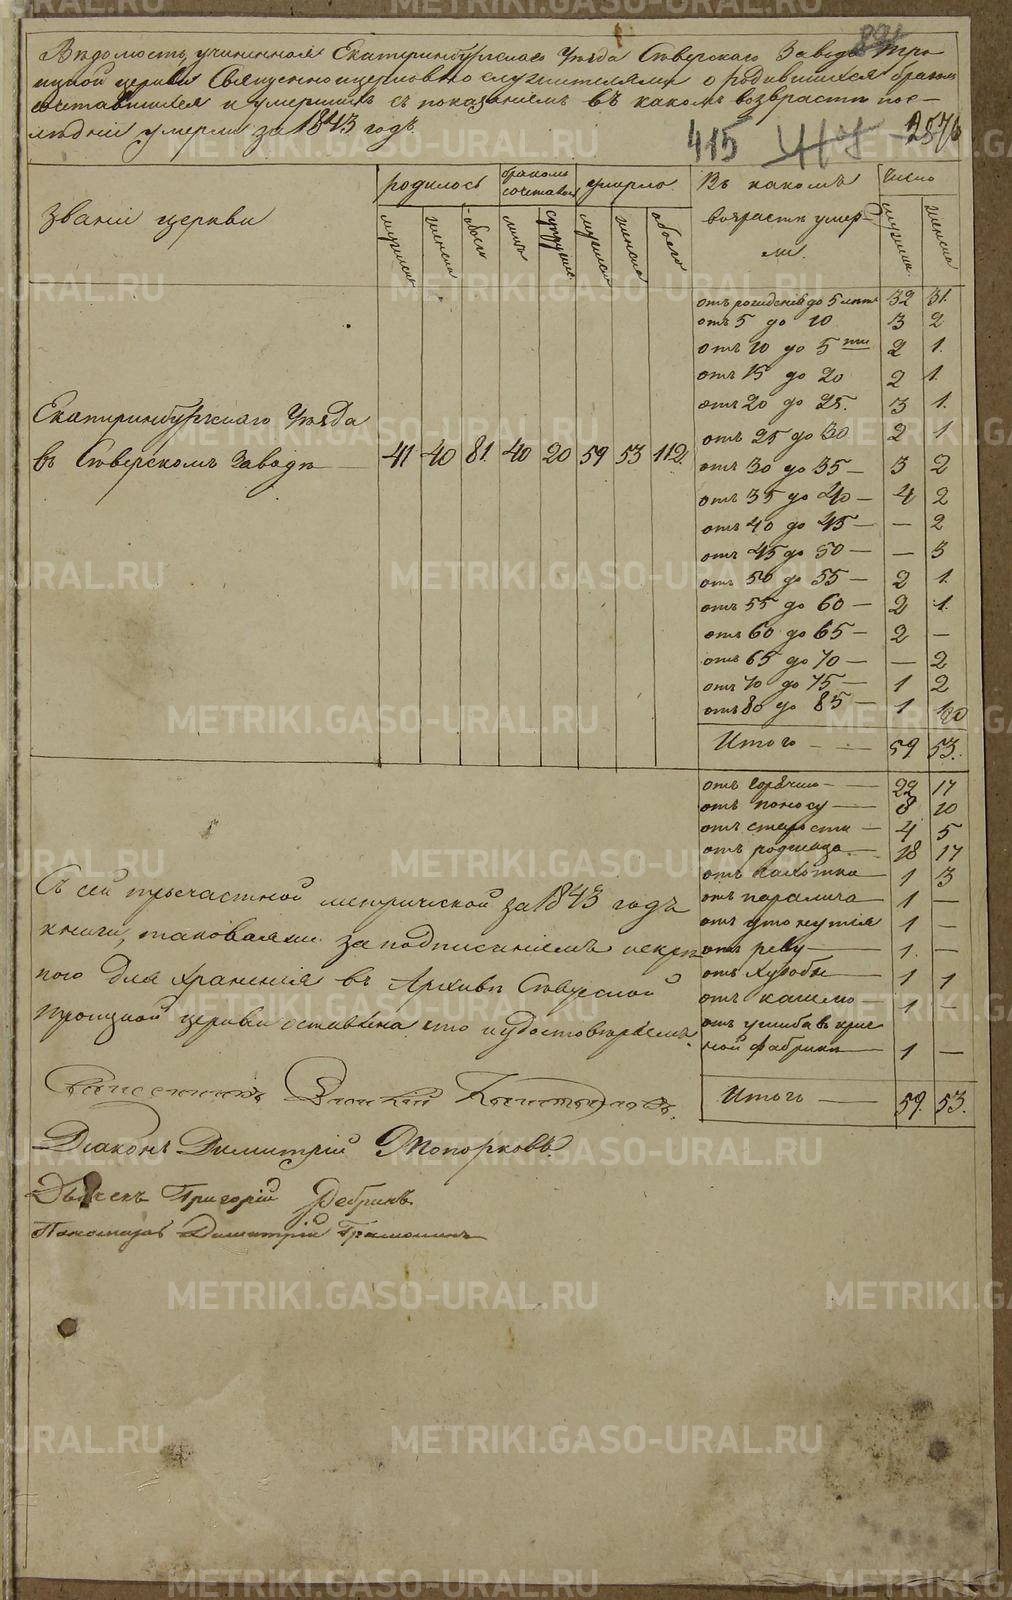 Ведомость, учиненная Екатеринбургскаго Уезда Северскаго Завода Тро-
ицкой церкви Священноцерковно служителями о родившихся браком
сочетавшихся и умерших съ показаніемъ въ какомъ возврасте пос-
ледніе умерли за 1843 годъ.
415
званіе церкви
родилось
бракомъ сочетавш
умерло
Въ какомъ
возрасте умер-
ли.
число
мужеска
женска
обоего
лицъ
супруж.
мужеска
женска
обоего
мужеска
женска
Екатеринбургскаго Уезда
въ Северскомъ Заводе — 41 40 81. 40 20 59 53 112.
отъ рожденія до 5 летъ 32 31.
отъ 5 до 10 3 2
отъ 10 до 5 ти 2 1.
отъ 15 до 20 2 1.
отъ 20 до 25. 3 1.
отъ 25 до 30 2 1
отъ 30 до 35 — 3 2
отъ 35 до 40 — 4 2
отъ 40 до 45 — — 2
отъ 45 до 50 — — 3
отъ 50 до 55 — 2 1.
отъ 55 до 60 — 2 1.
отъ 60 до 65 — 2 —
отъ 65 до 70 — — 2
отъ 70 до 75 — 1 2
отъ 80 до 85 — 1
Итого — — 59. 53.
отъ горячки — 22 17
отъ поносу — 8 10
отъ старости — 4 5
отъ родимца — 18 17
отъ чахотки — 1 3
отъ паралича — 1 —
отъ утонутія 1 —
отъ резу — 1. —
отъ худобы — 1 1
отъ кашлю — 1 —
отъ ушиба в
ной фабрике — 1 —
Итого — 59. 53.
Съ сей троечастной метрической за 1843 годъ
книги, таковаяже за подписаніемъ
для храненія въ Архиве Северской
Троицкой церкви оставлена что и удостоверяемъ.
Священникъ
Діаконъ Димитрій Топорковъ.
Дьячекъ Григорій
Пономарь Димитрій
METRIKI.GASO-URAL.RU